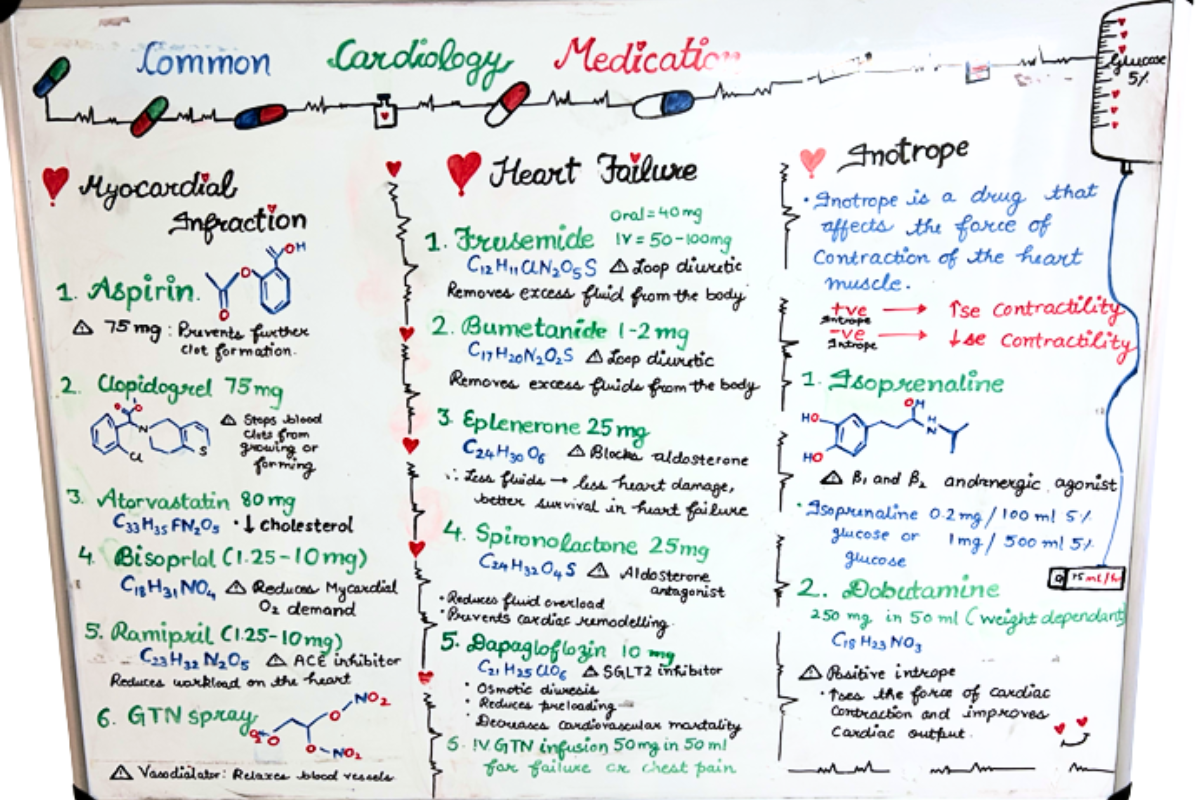 Common Cardiology Medication
Glucose
5%
Myocardial
Infraction
1. Aspirin.
OH
O
O
O
⚠ 75 mg : Prevents further
clot formation.
2. Clopidogrel 75mg
O
O
N
Cl
S
⚠ Stops blood
clots from
growing or
forming
3. Atorvastatin 80 mg
C33H35FN2O5 • ↓ cholesterol
4. Bisoprlol (1.25-10mg)
C18H31NO4 ⚠ Reduces Mycardial
O2 demand
5. Ramipril (1.25-10mg)
C23H32N2O5 ⚠ ACE inhibitor
Reduces workload on the heart
6. GTN spray
NO2
O
O
O-NO2
⚠ Vasodialator: Relaxes blood vessels
Heart Failure
Oral = 40 mg
1. Frusemide IV = 50-100mg
C12H11ClN2O5S ⚠ Loop diuretic
Removes excess fluid from the body
2. Bumetanide 1-2 mg
C17H20N2O2S ⚠ Loop diuretic
Removes excess fluids from the body
3. Eplenerone 25 mg
C24H30O6 ⚠ Blocks aldosterone
∴ Less fluids → less heart damage,
better survival in heart failure
4. Spironolactone 25mg
C24H32O4S ⚠ Aldosterone
antagonist
• Reduces fluid overload
• Prevents cardiac remodelling.
5. Dapagloflozin 10 mg
C21H25ClO6 ⚠ SGLT2 inhibitor
• Osmotic diuresis
• Reduces preloading
• Decreases cardiovascular mortality
6. IV GTN infusion 50mg in 50 ml
for failure or chest pain
Inotrope
• Inotrope is a drug that
affects the force of
Contraction of the heart
muscle.
+ve → ↑se Contractility
Inotrope
-ve → ↓se Contractility
Intrope
1. Isoprenaline
OH
HO
H
N
HO
⚠ β1 and β2 andrenergic agonist
• Isoprenaline 0.2 mg / 100 ml 5%
glucose or 1mg / 500 ml 5%
glucose
15 ml/hr
2. Dobutamine
250 mg in 50 ml (weight dependant)
C18H23NO3
⚠ Positive intrope
• ↑ses the force of cardiac
contraction and improves
Cardiac output.